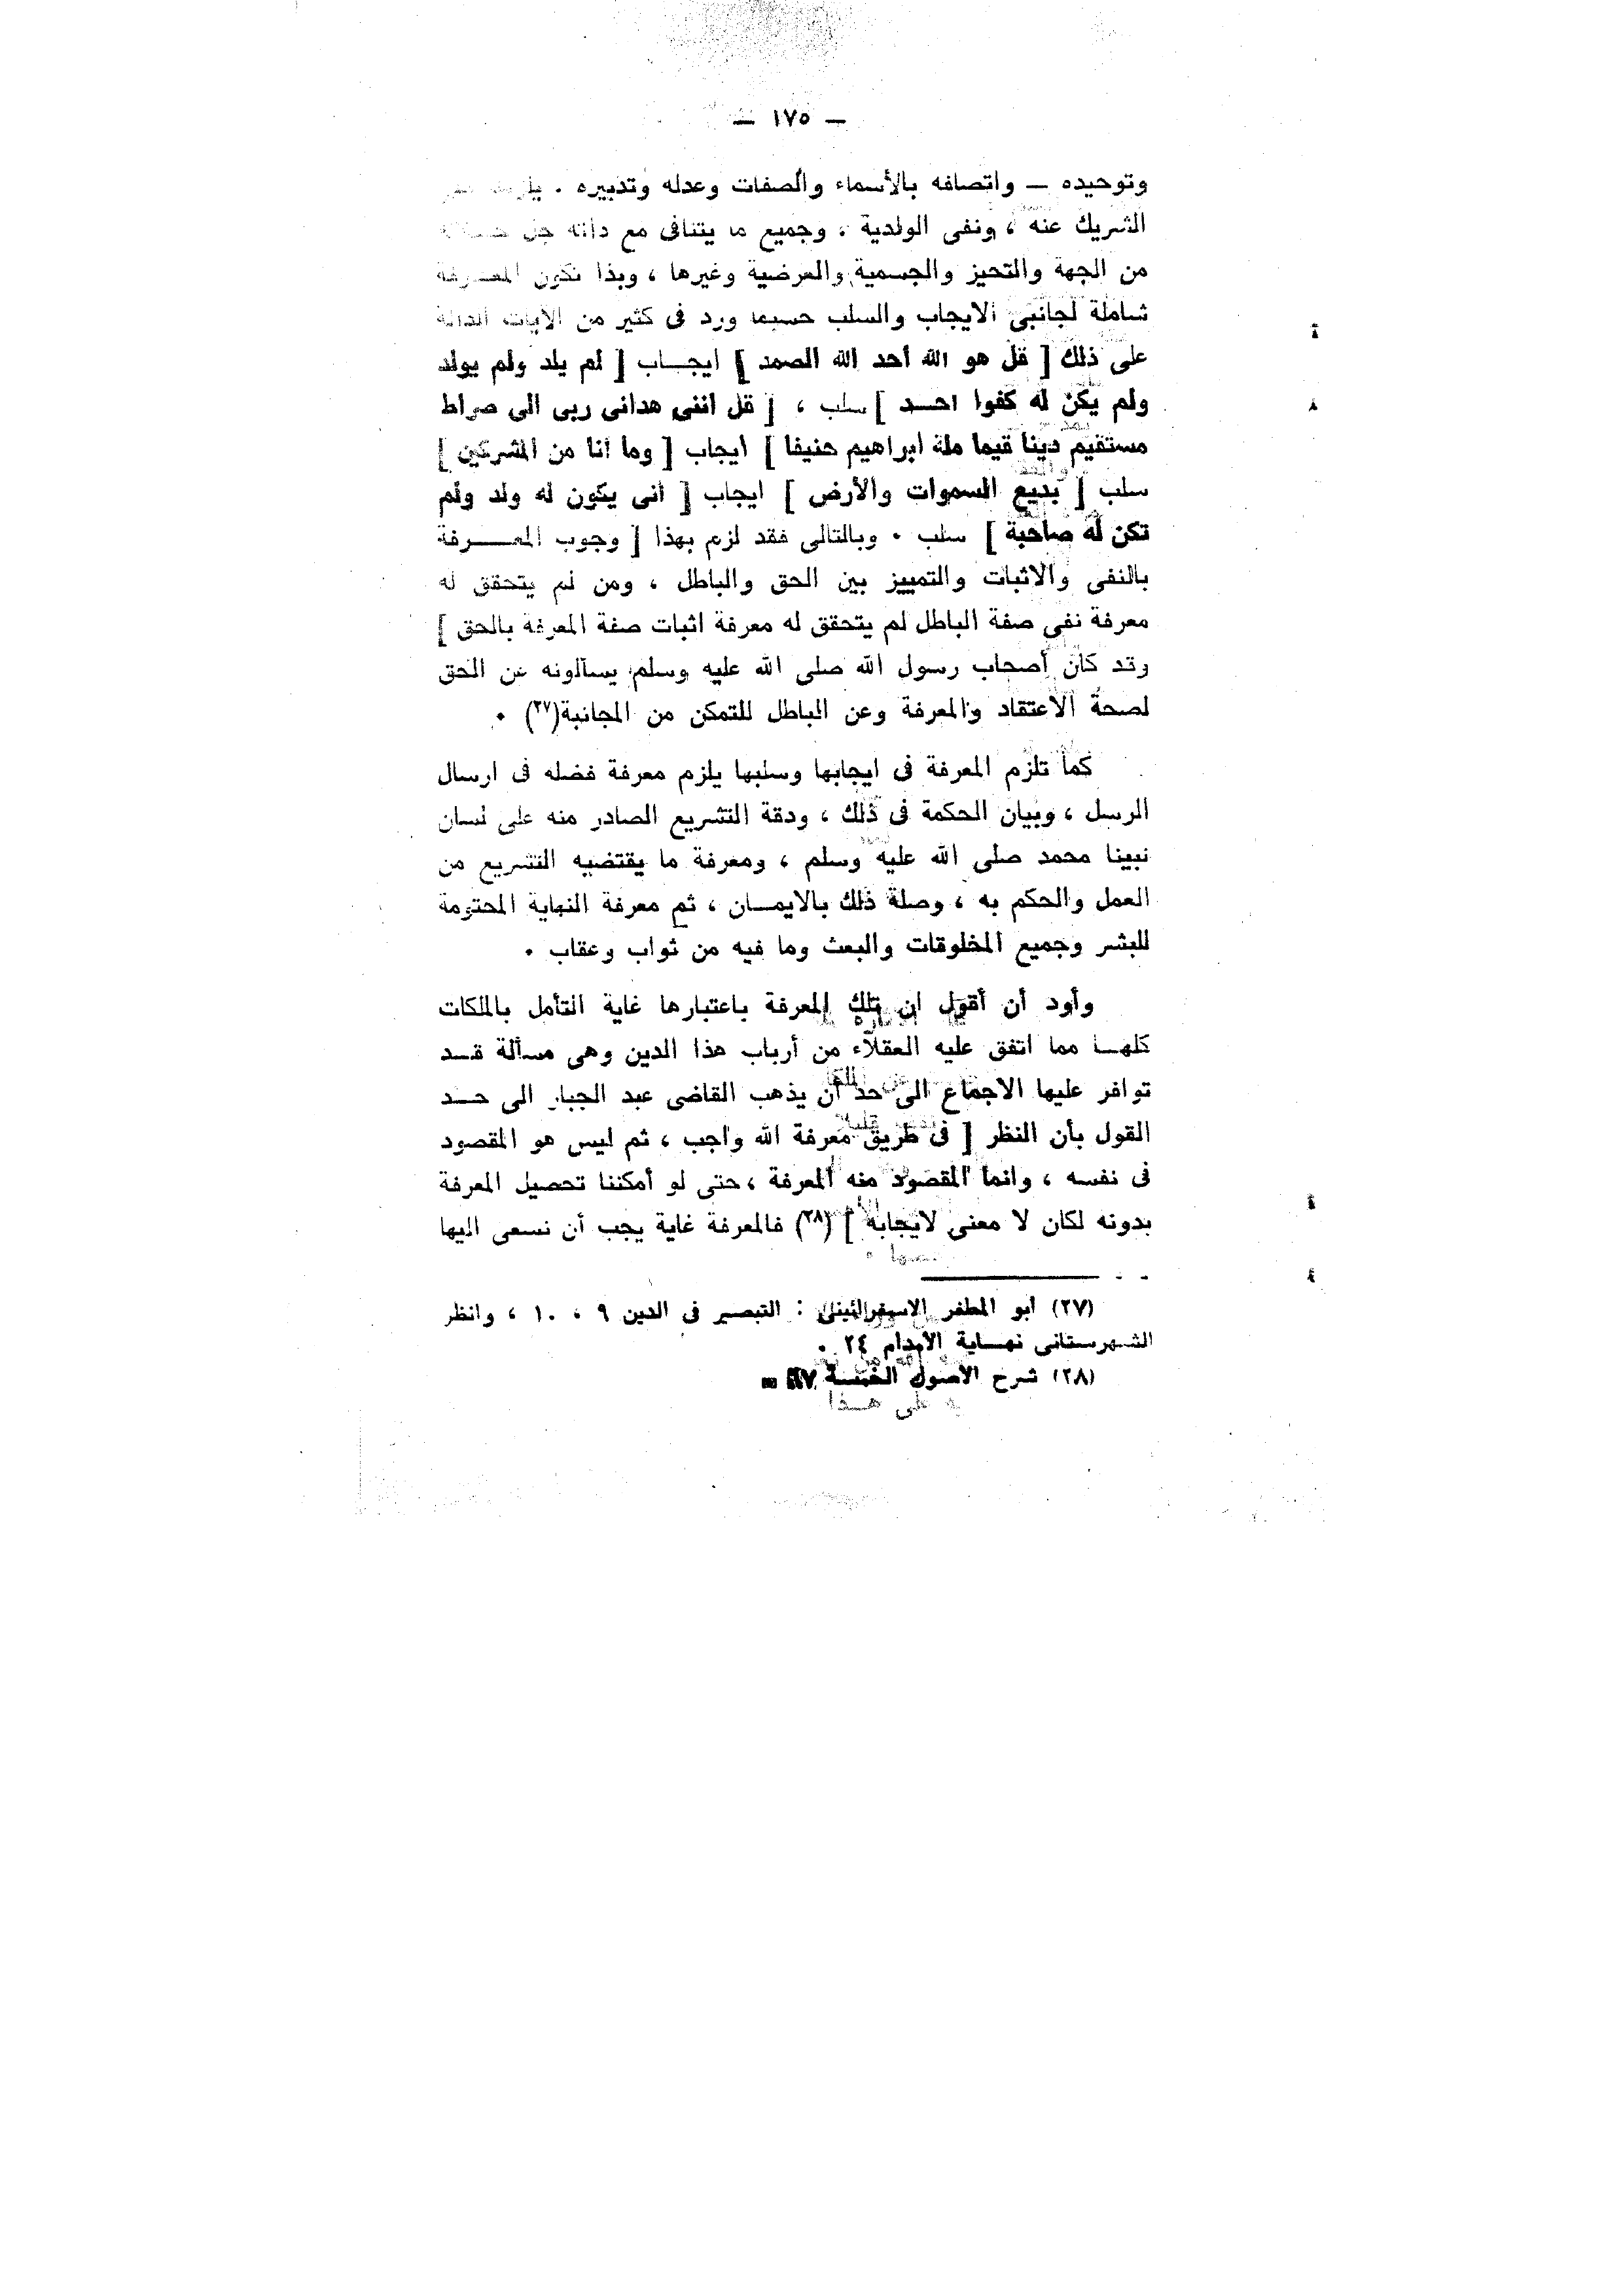 — ١٧٥ —
وتوحيده — واتصافه بالأسماء والصفات وعدله وتدبيره .
الشريك عنه ، ونفى الولدية ، وجميع ما يتنافى مع ذاته جل
من الجهة والتحيز والجسمية والعرضية وغيرها ، وبذا تكون المعــرفة
شاملة لجانبى الايجاب والسلب حسبما ورد فى كثير من الآيات الدالة
على ذلك [ قل هو الله أحد الله الصمد ] ايجــاب [ لم يلد ولم يولد
ولم يكن له كفوا احــد ] سلب ، [ قل اننى هدانى ربى الى صراط
مستقيم دينا قيما ملة ابراهيم حنيفا ] ايجاب [ وما أنا من المشركين ]
سلب [ بديع السموات والأرض ] ايجاب [ أنى يكون له ولد ولم
تكن له صاحبة ] سلب . وبالتالى فقد لزم بهذا [ وجوب المعــرفة
بالنفى والاثبات والتمييز بين الحق والباطل ، ومن لم يتحقق له
معرفة نفى صفة الباطل لم يتحقق له معرفة اثبات صفة المعرفة بالحق ]
وقد كان أصحاب رسول الله صلى الله عليه وسلم يسألونه عن الحق
لصحة الاعتقاد والمعرفة وعن الباطل للتمكن من المجانبة(٢٧) .
كما تلزم المعرفة فى ايجابها وسلبها يلزم معرفة فضله فى ارسال
الرسل ، وبيان الحكمة فى ذلك ، ودقة التشريع الصادر منه على لسان
نبينا محمد صلى الله عليه وسلم ، ومعرفة ما يقتضيه التشريع من
العمل والحكم به ، وصلة ذلك بالايمــان ، ثم معرفة النهاية المحتومة
للبشر وجميع المخلوقات والبعث وما فيه من ثواب وعقاب .
وأود أن أقول ان تلك المعرفة باعتبارها غاية التأمل بالملكات
كلهــا مما اتفق عليه العقلاء من أرباب هذا الدين وهى مسألة قــد
توافر عليها الاجماع الى حد أن يذهب القاضى عبد الجبار الى حــد
القول بأن النظر [ فى طريق معرفة الله واجب ، ثم ليس هو المقصود
فى نفسه ، وانما المقصود منه المعرفة ، حتى لو أمكننا تحصيل المعرفة
بدونه لكان لا معنى لايجابه ] (٢٨) فالمعرفة غاية يجب أن نسعى اليها
(٢٧) أبو المظفر الاسفرائينى : التبصير فى الدين ٩ ، ١٠ ، وانظر
الشهرستانى نهــاية الاقدام ٢٤ .
(٢٨) شرح الأصول الخمسة
على هــذا